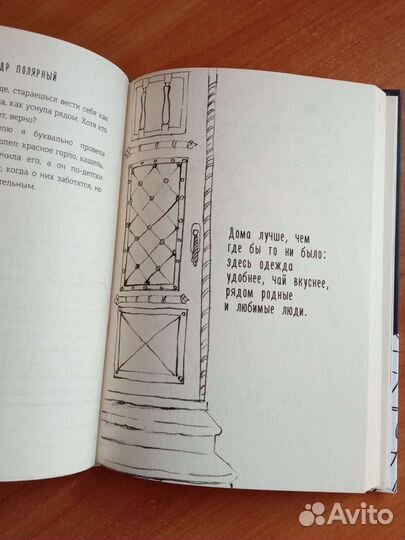 ДР ПОЛЯРНЫЙ
це, стараешься вести себя как
а, как уснула рядом. Хотя кто
ет, верно?
елю я буквально провела
олел: красное горло, кашель,
ечила его, а он по-детски
т, когда о них заботятся, но
тельным.
Дома лучше, чем
где бы то ни было:
здесь одежда
удобнее, чай вкуснее,
рядом родные
и любимые люди.
Avito